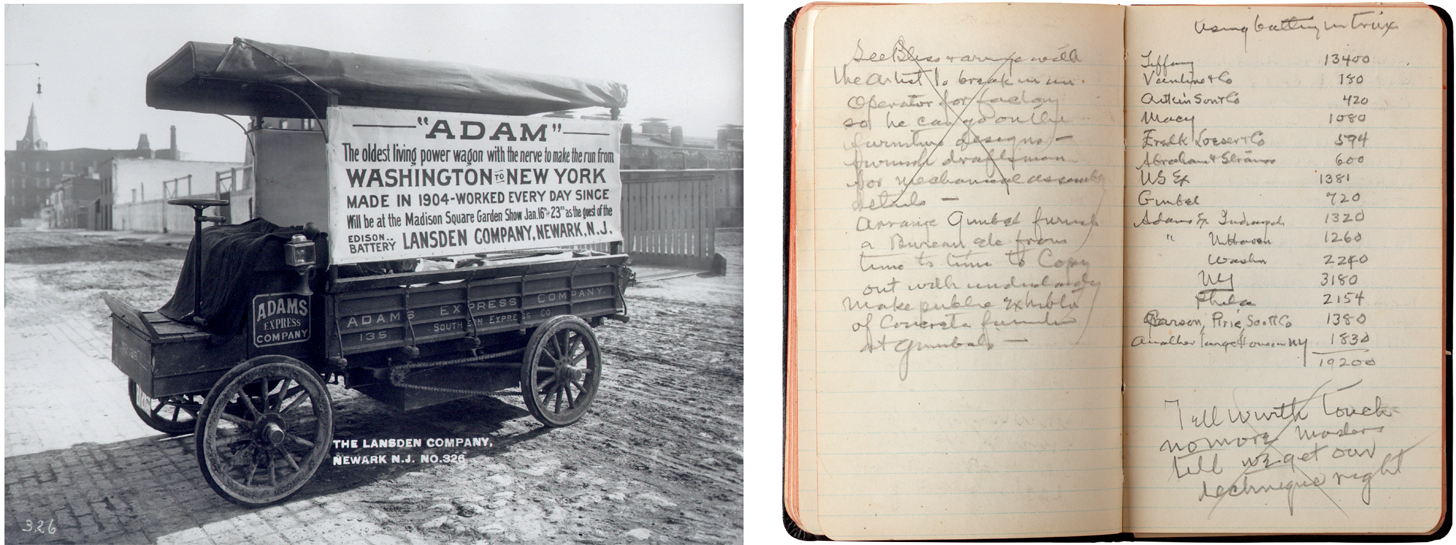 "ADAM"
The oldest living power wagon with the nerve to make the run from
WASHINGTON TO NEW YORK
MADE IN 1904-WORKED EVERY DAY SINCE
Will be at the Madison Square Garden Show Jan. 16th 23rd as the guest of the
EDISON BATTERY LANSDEN COMPANY, NEWARK, N.J.
ADAMS
EXPRESS
COMPANY
ADAMS EXPRESS COMPANY
135 SOUTHERN EXPRESS Co
THE LANSDEN COMPANY,
NEWARK N.J. NO.326
326
See Bliss & arrange with
the artist to break in an
Operator for factory
so he can go on the
furniture designs —
furnish draftsman
for mechanical assembly
details —
Arrange Gimbel furnish
a Bureau etc from
time to time to Copy
out with undoubtedly
make public Exhibit
of Concrete furniture
at Gimbels —
Using battery in Trux
Tiffany 13400
Valentine & Co 180
Aitkin Son & Co 420
Macy 1080
Fredk Loeser & Co 594
Abraham & Straus 600
US Ex 1381
Gimbel 720
Adams Ex Indianapls 1320
" N Haven 1260
Washn 2240
NY 3180
Phila 2154
Carson, Pirie, Scott Co 1380
Another large house in NY 1830
19200
Tell Wurth touch
no more models
till we get our
technique right